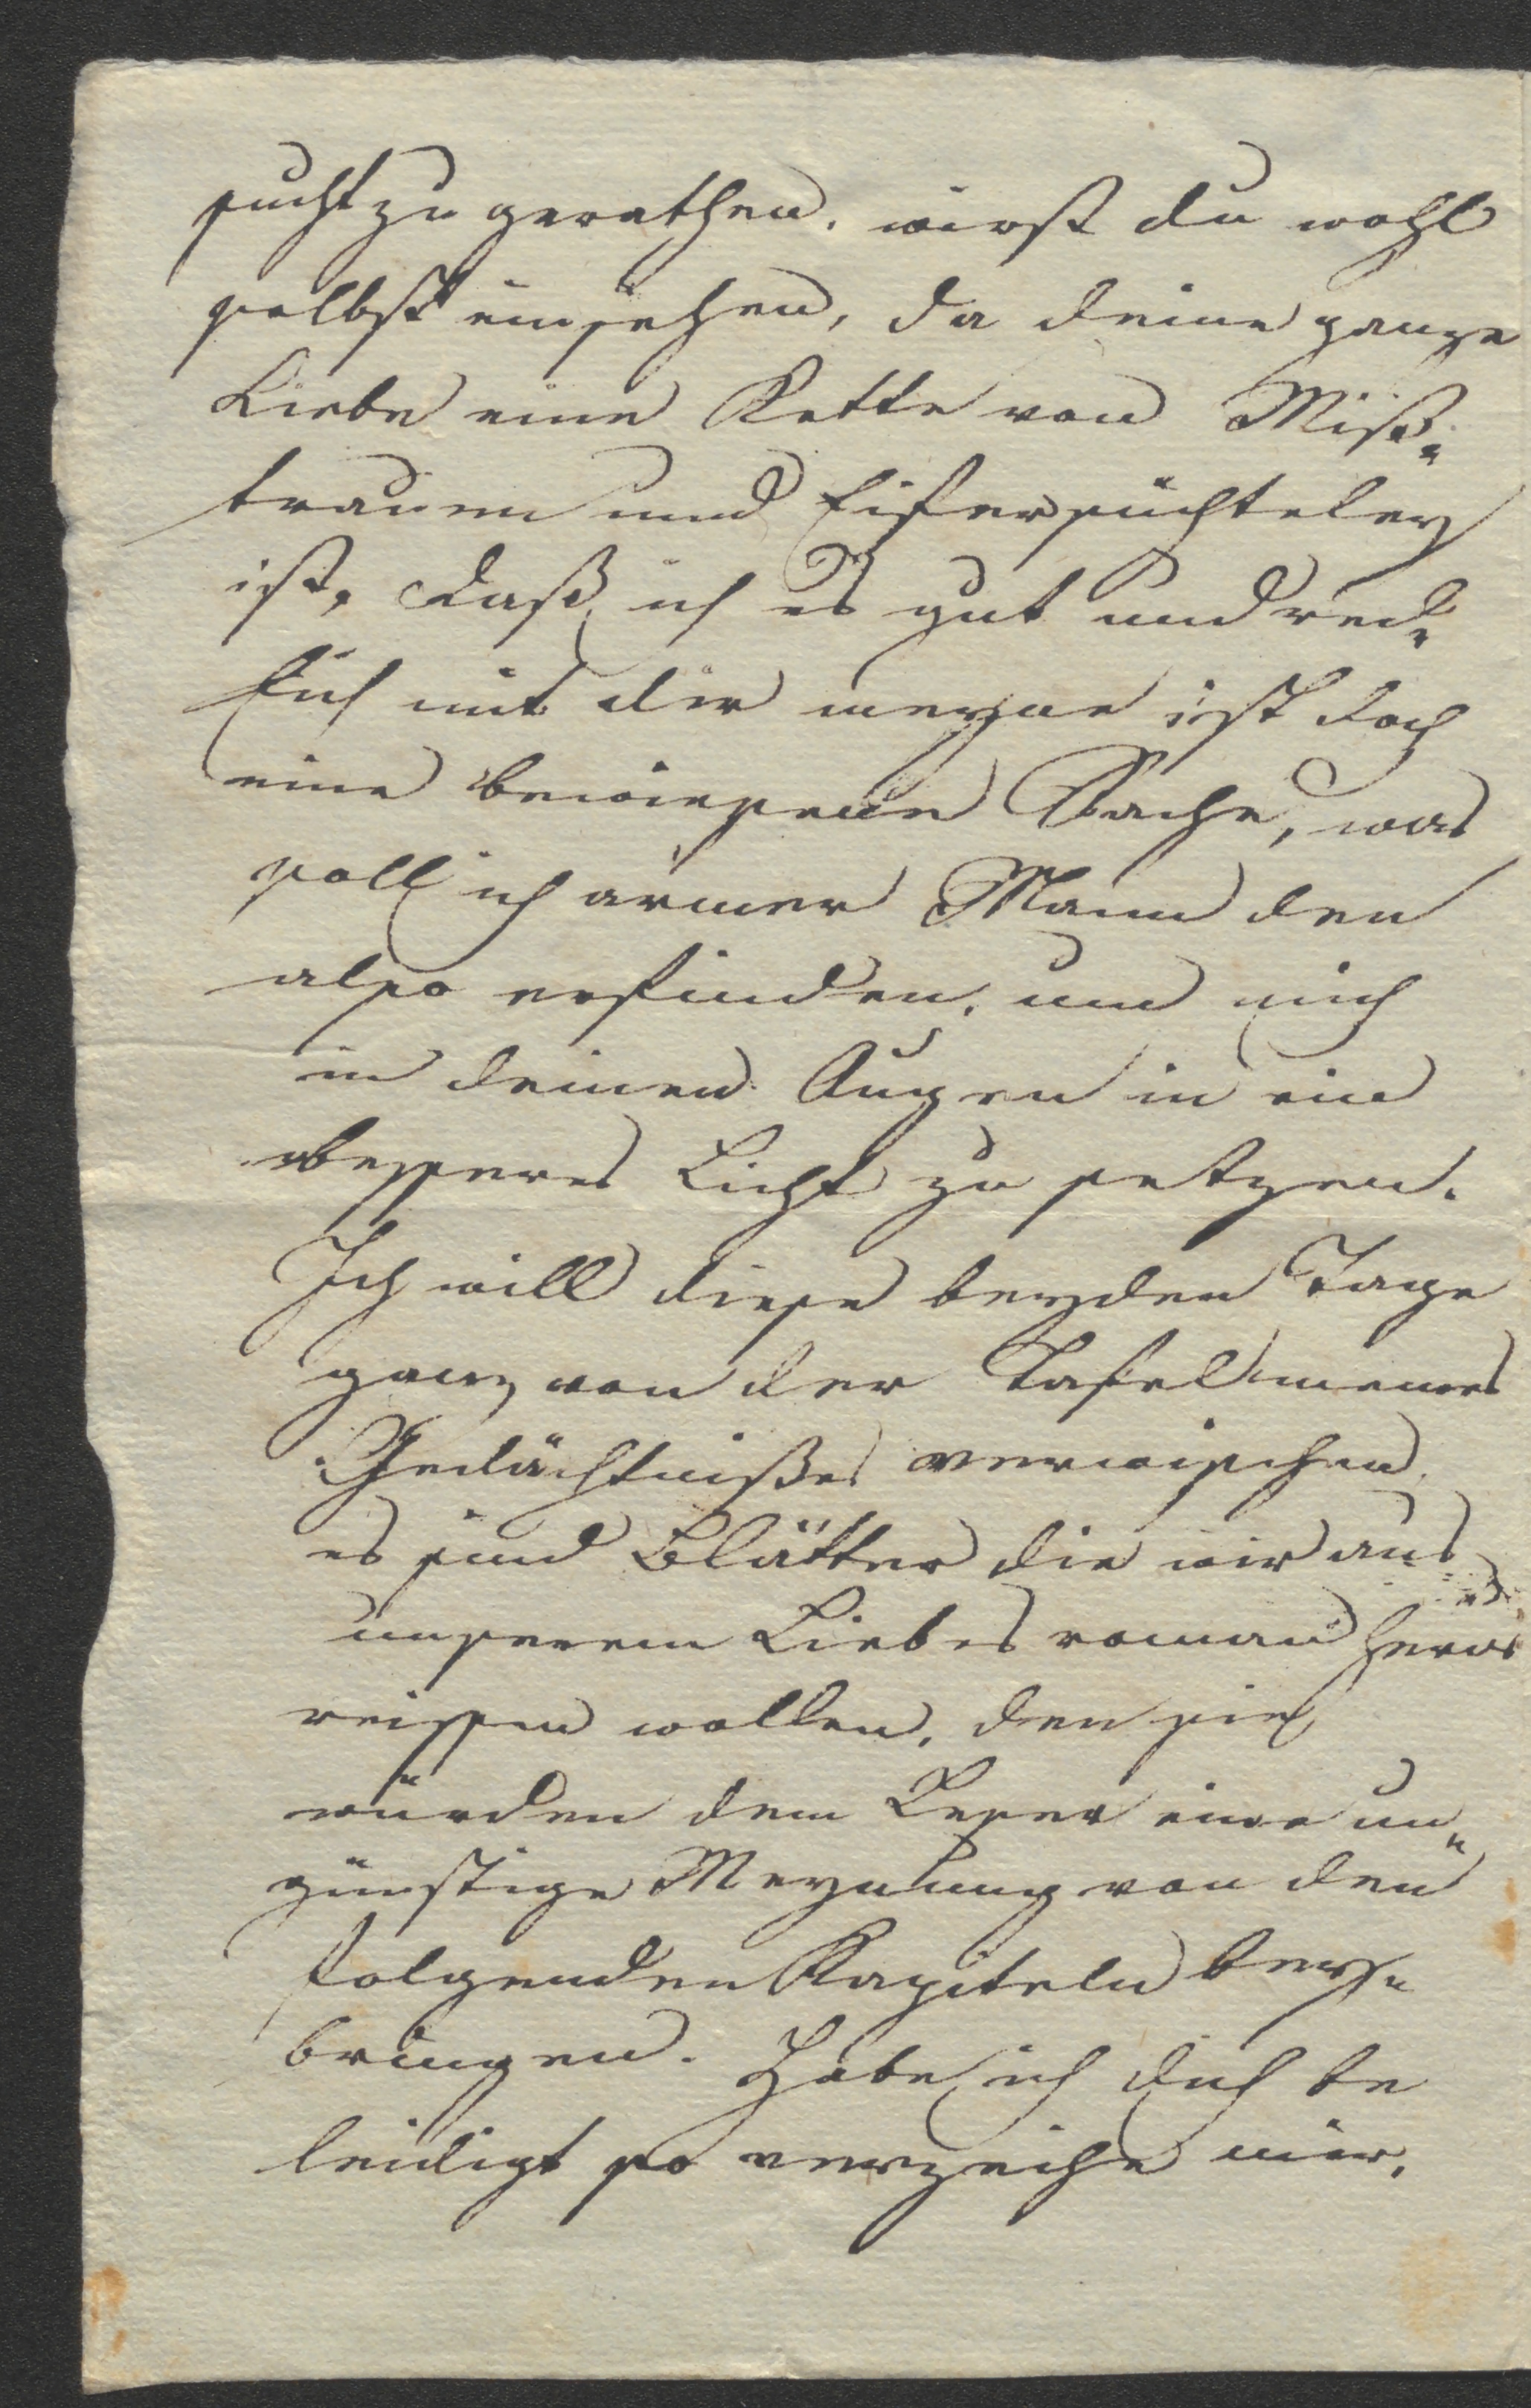 sucht zu gerathen. wirst du wohl
selbst einsehen, da deine ganze
Liebe eine Kette von Miß-
trauen und Eifersüchteley
ist. Daß ich es gut und red-
lich mit dir meyne ist doch
eine bewiesene Sache, was
soll ich armer Mann den
also erfinden, um mich
in deinen Augen in ein
besseres Licht zu setzen.
Ich will diese beyden Tage
ganz von der Tafel meines
Gedächtnißes verwischen
es sind Blätter die wir aus
unserem Liebes roman heraus
reissen wollen, den sie
würden dem Leser eine un-
günstige Meynung von den
folgenden Kapiteln bey-
bringen. Habe ich dich be
leidigt so verzeihe mir.